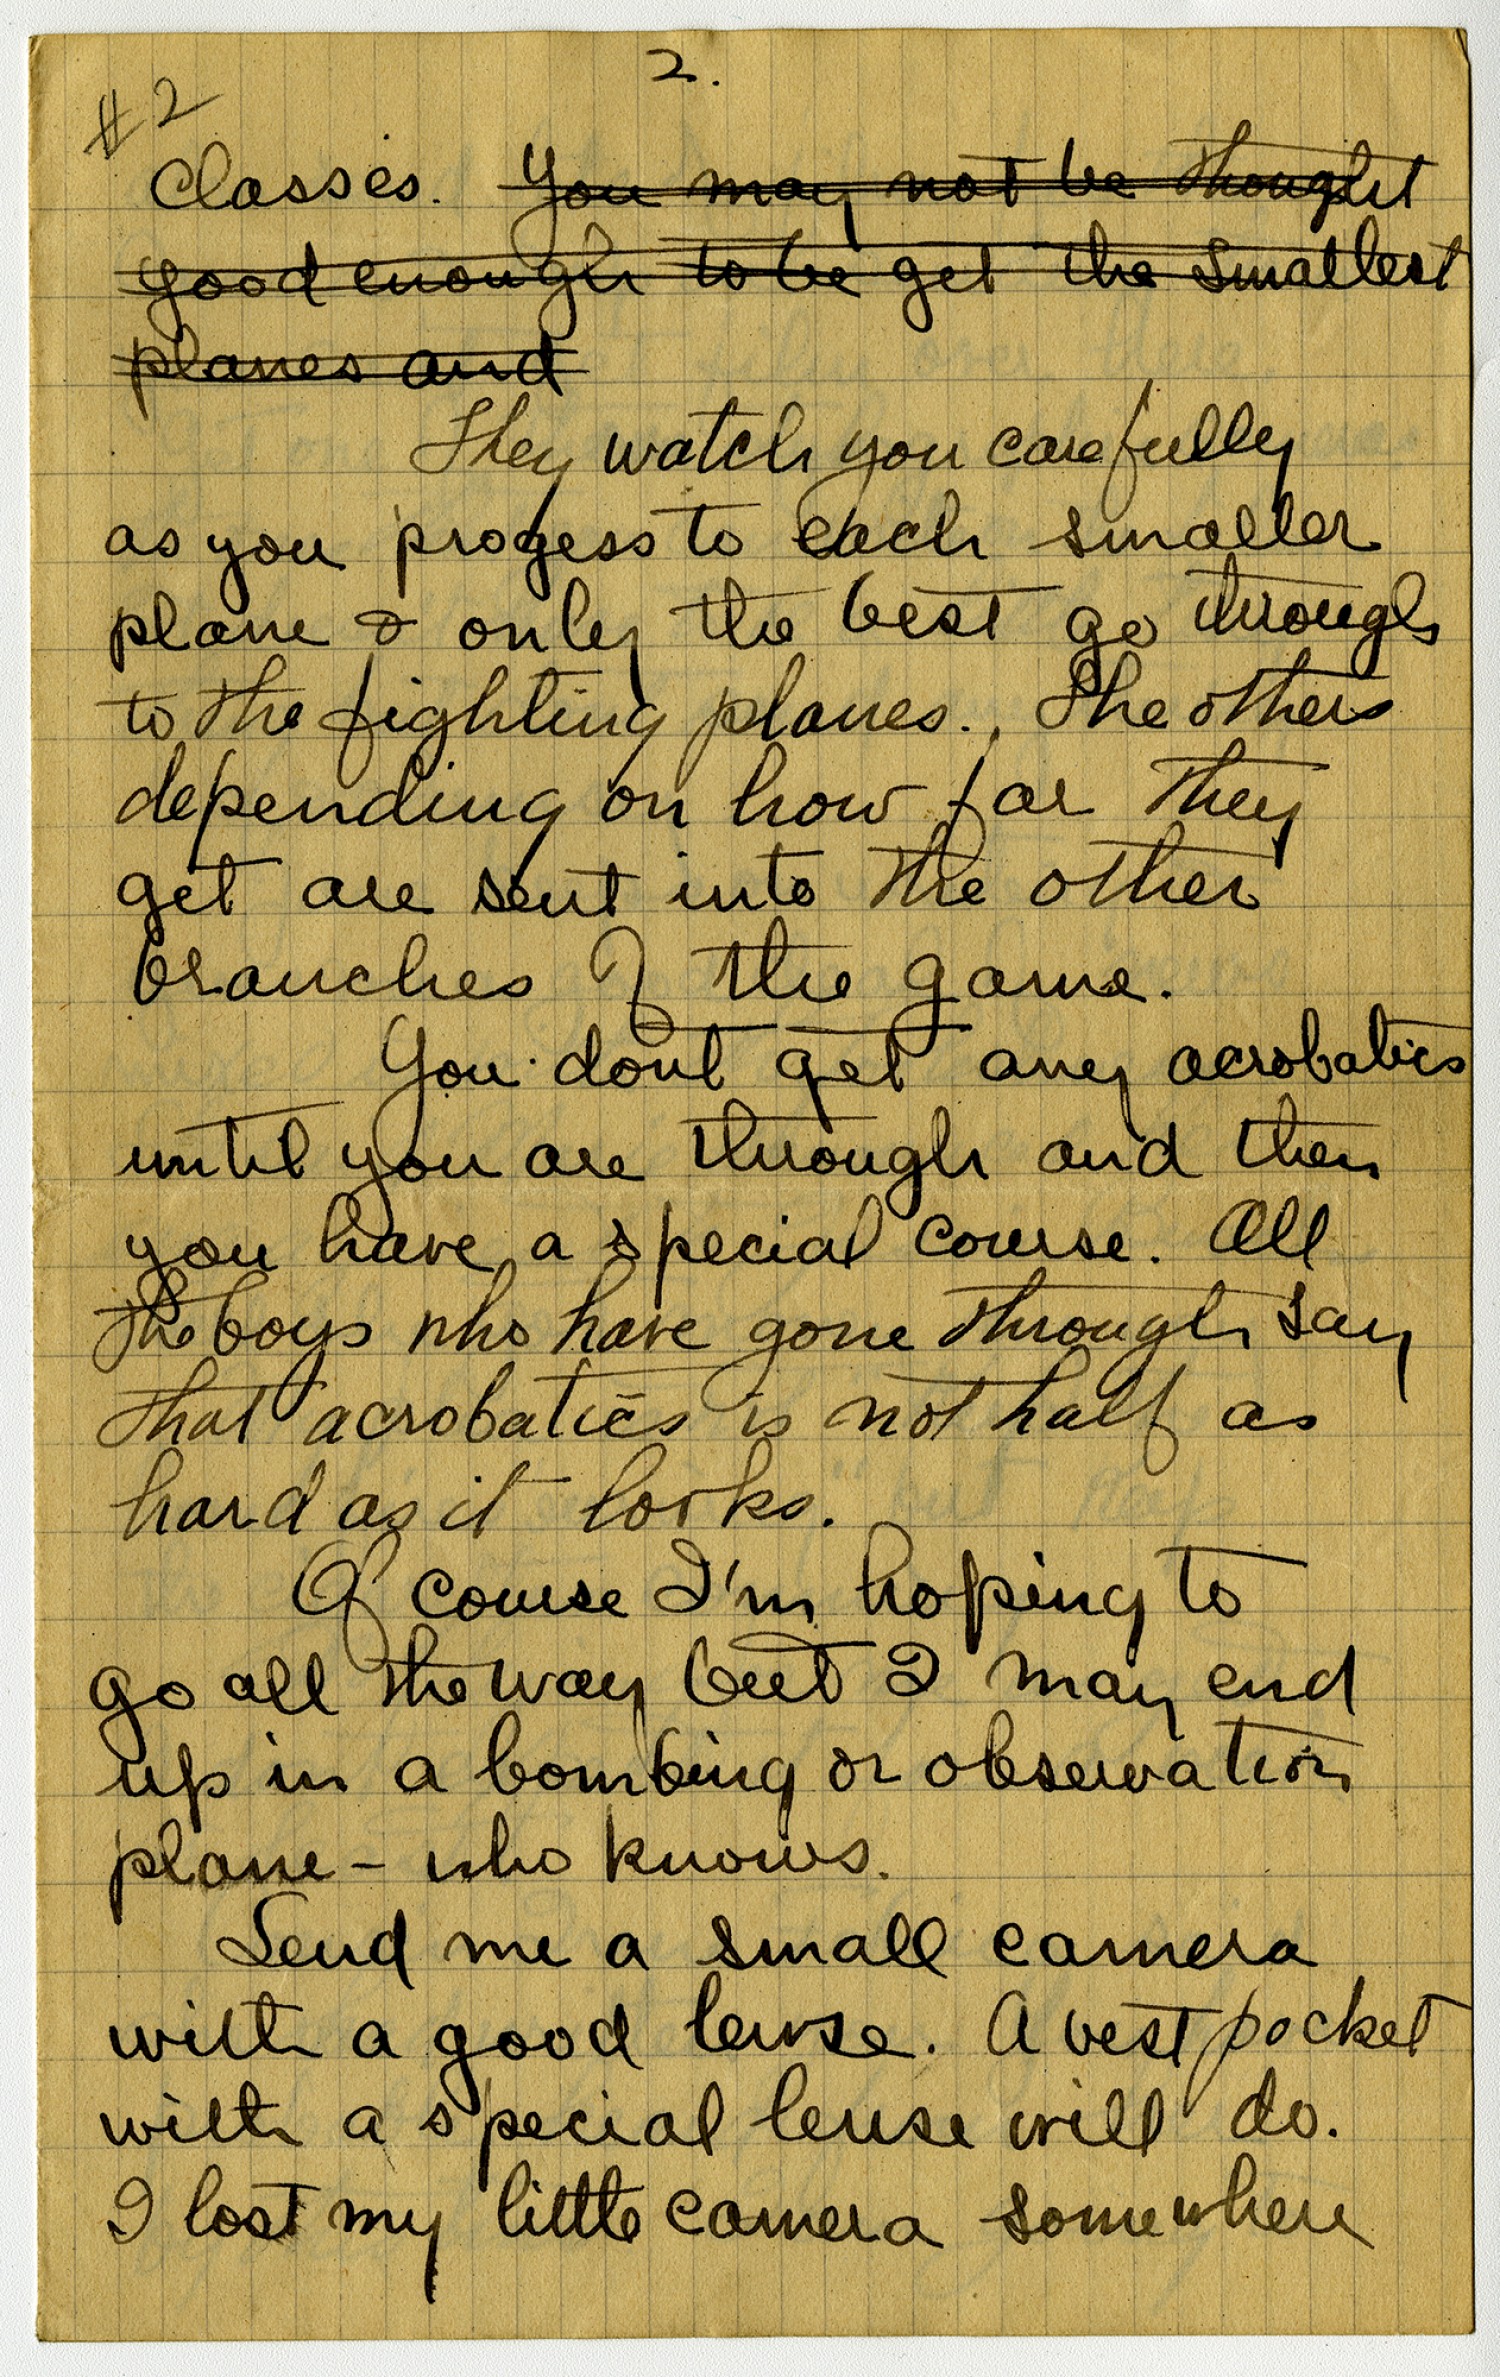 2.
#2
Classes. You may not be thought
good enough to be get the smallest
planes and
They watch you carefully
as you progess to each smaller
plane & only the best go through
to the fighting planes. The others
depending on how far they
get are sent into the other
branches of the game.
You dont get any acrobatics
until you are through and then
you have a special course. All
the boys who have gone through say
that acrobatics is not half as
hard as it looks.
Of course I'm hoping to
go all the way but I may end
up in a bombing or observation
plane – who knows.
Send me a small camera
with a good lense. A vest pocket
with a special lense will do.
I lost my little camera somewhere